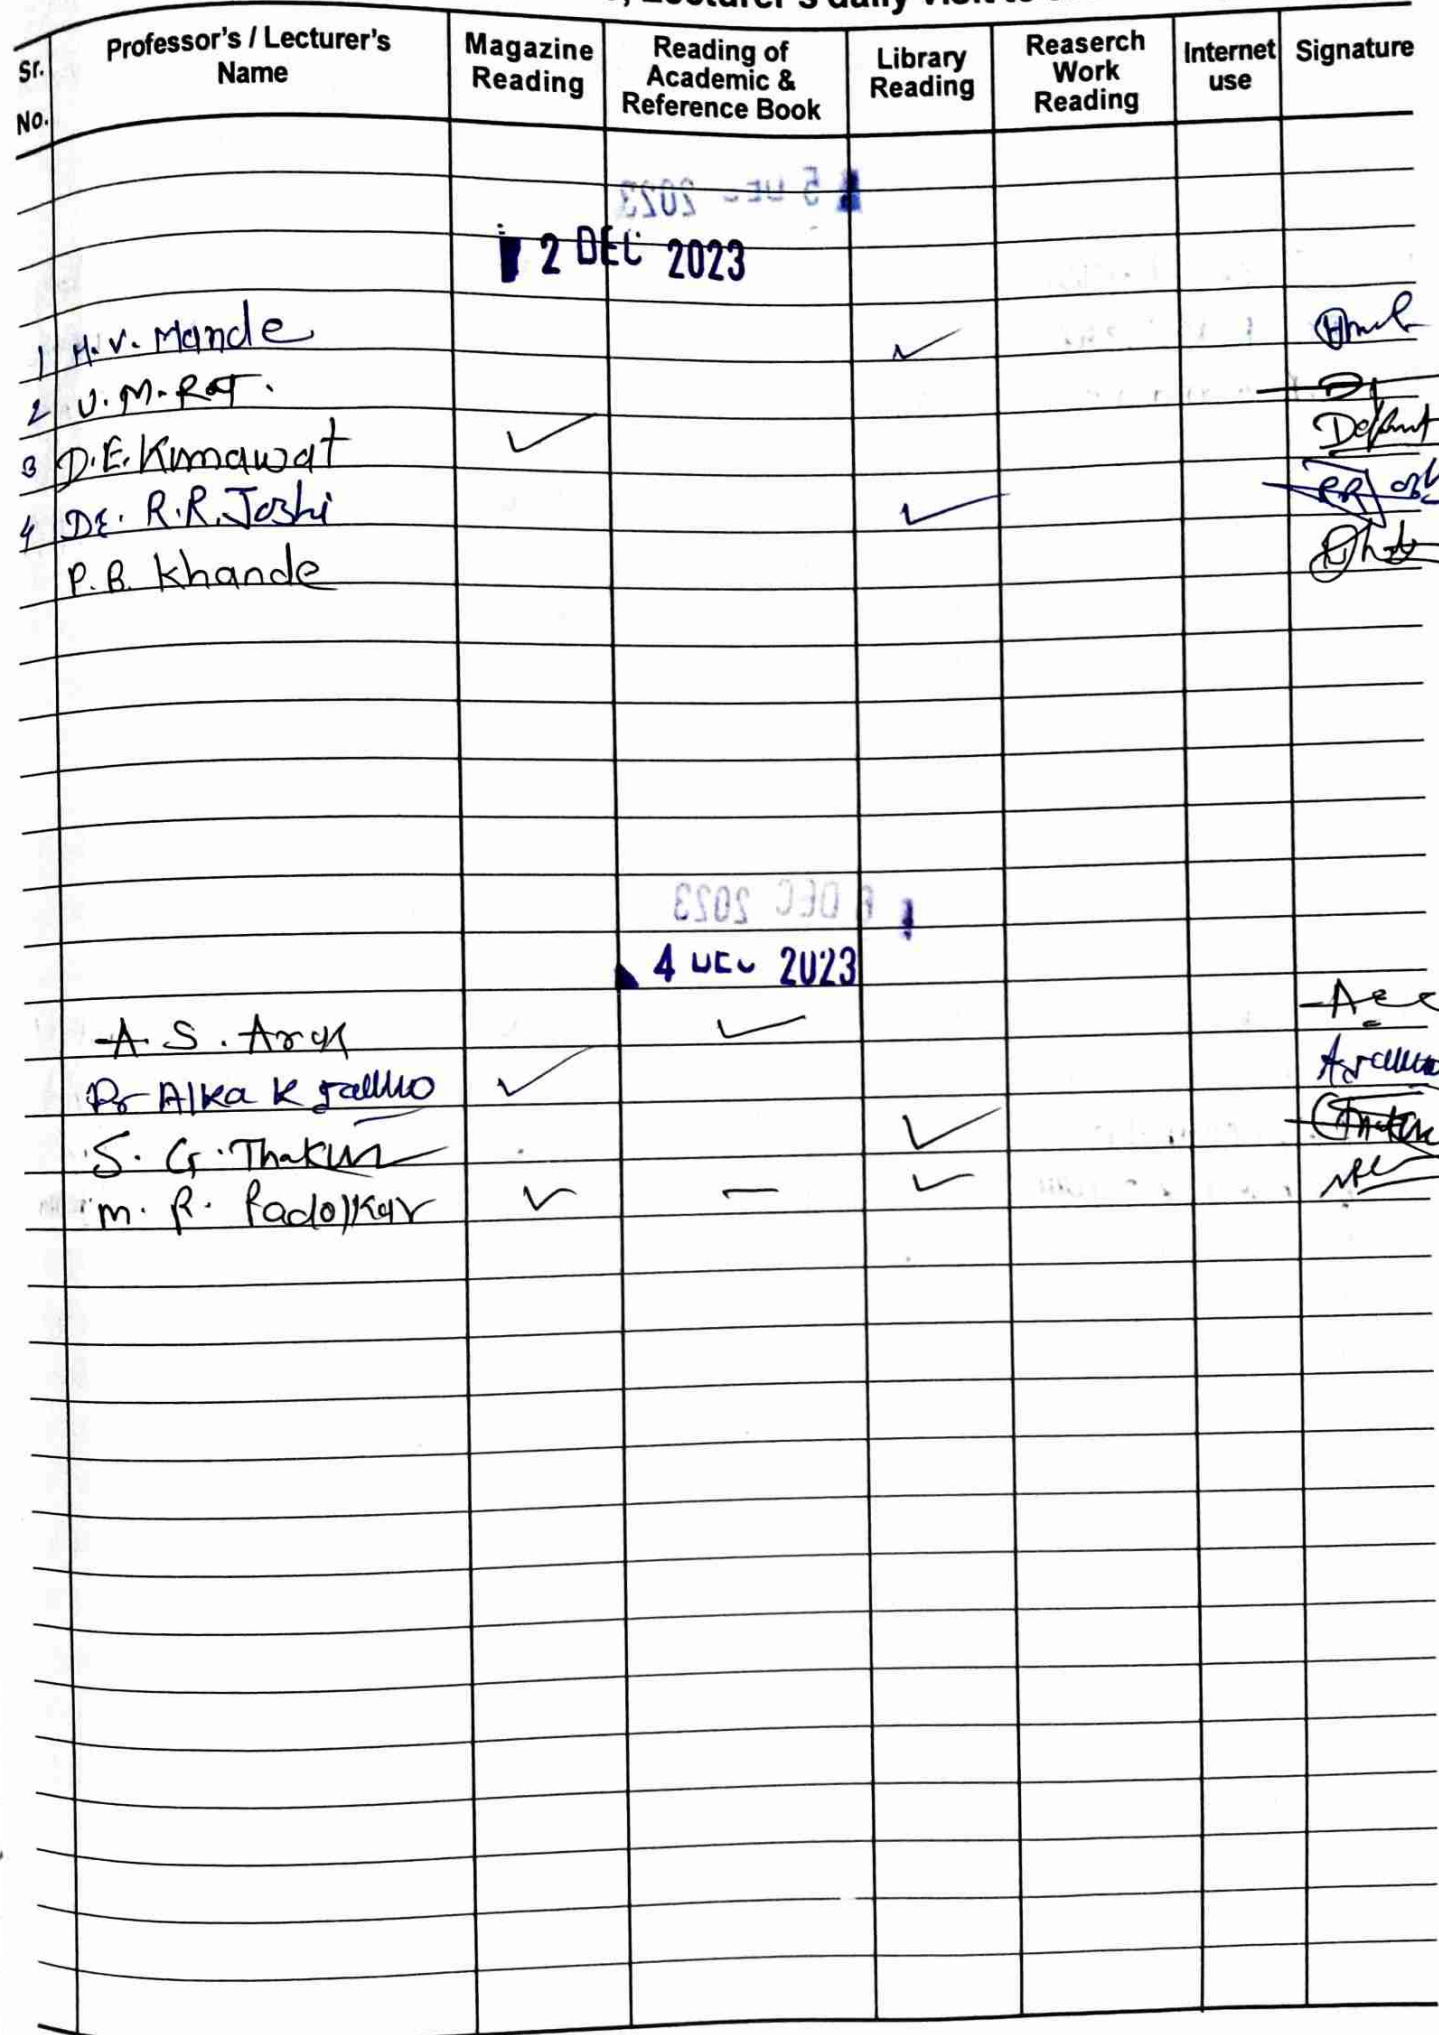 Lecturer's daily visit to
Sr. No. Professor's / Lecturer's Name Magazine Reading Reading of Academic & Reference Book Library Reading Reaserch Work Reading Internet use Signature
2 DEC 2023
1 H. V. Mande ✓
2 U. M. Rat.
3 D. E. Kumawat ✓
4 Dr. R. R. Joshi ✓
P. B. Khande
6 DEC 2023
4 DEC 2023
A. S. ✓
Dr Alka K ✓
S. G. Thakur ✓
M. R. Padolkar ✓ — ✓